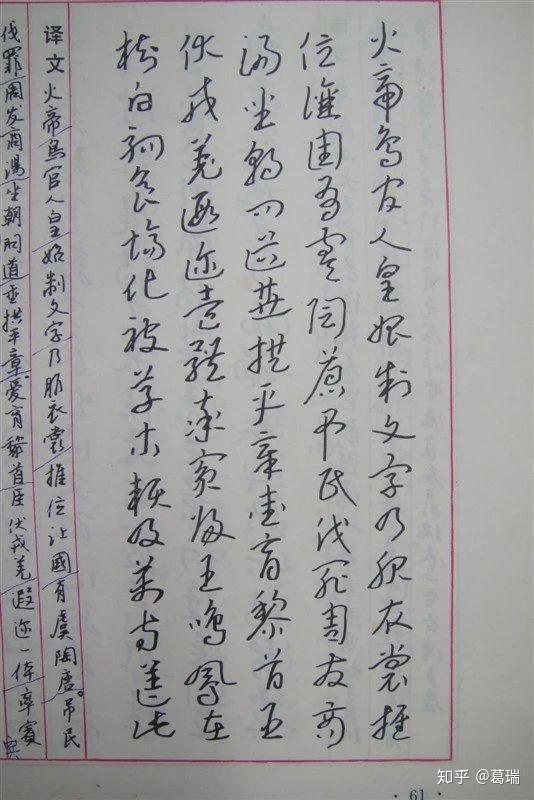 火帝鳥官人皇始制文字乃服衣裳推
位讓國有虞陶唐吊民伐罪周發商
湯坐朝問道垂拱平章愛育黎首臣
伏戎羌遐迩壹體率賓歸王鳴鳳在
樹白駒食場化被草木賴及萬方蓋此
译文火帝鳥官人皇始制文字乃服衣裳推位让國有虞陶唐。吊民
伐罪周发商湯坐朝问道垂拱平章。爱育黎首臣伏戎羌遐迩一体率賓
· 61 ·
知乎 @葛瑞